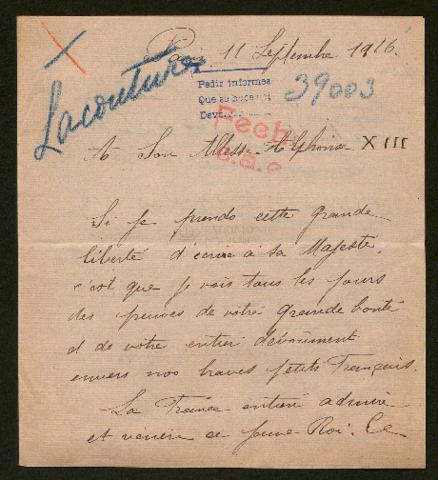 Paris 11 Septembre 1916.
Lacouture
Pedir informes
Que se hacen
39003
Fecho
A Son Altesse Alphonse XIII
Si je prends cette grande
liberté d'écrire à sa Majesté,
c'est que je vois tous les jours
des preuves de votre grande bonté
et de votre entier dévoûment
envers nos braves petits Français.
La France entière admire
et vénère ce jeune Roi. Ce